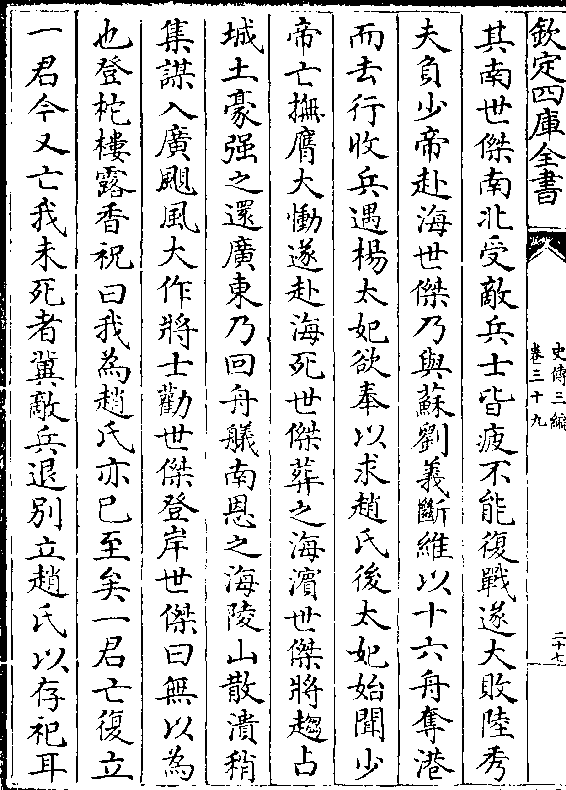 欽定四庫全書
史傳三編
卷三十九
二十七
其南世傑南北受敵兵士皆疲不能復戰遂大敗陸秀
夫負少帝赴海世傑乃與蘇劉義斷維以十六舟奪港
而去行收兵遇楊太妃欲奉以求趙氏後太妃始聞少
帝亡撫膺大慟遂赴海死世傑葬之海濱世傑將趨占
城土豪强之還廣東乃回舟艤南恩之海陵山散潰稍
集謀入廣颶風大作將士勸世傑登岸世傑曰無以為
也登柁樓露香祝曰我為趙氏亦已至矣一君亡復立
一君今又亡我未死者冀敵兵退别立趙氏以存祀耳